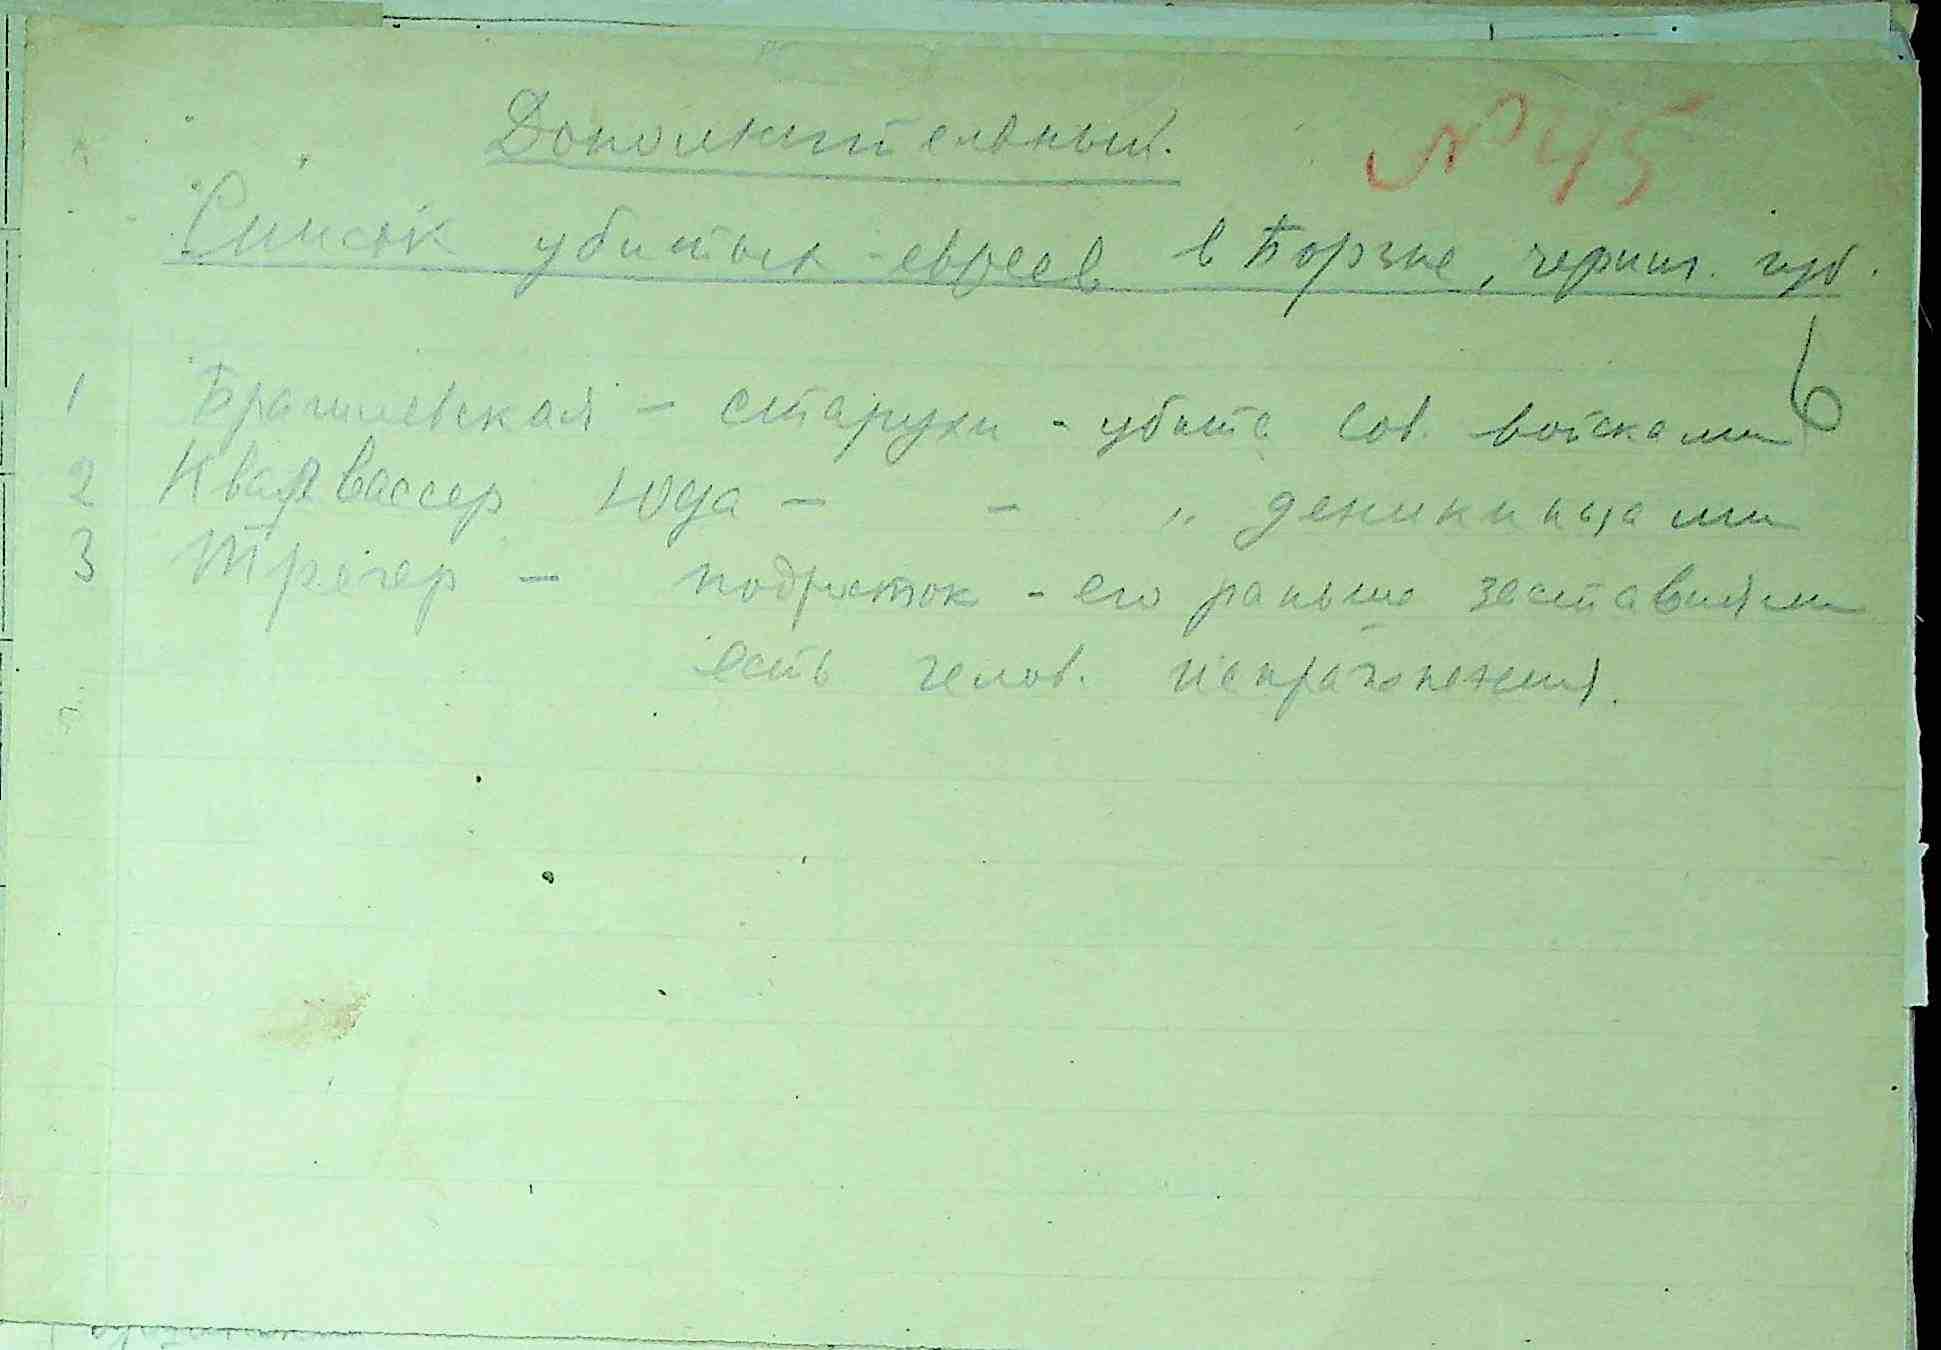 Дополнительный.
№ 45
Список убитых евреев в Борзне, черниг. губ.
6
1 Брагилевская - старуха - убита сов. войсками
2 Квасвассер Юда - - " деникинцами
3 Трегер - подросток - его раньше заставляли
есть челов. испражнения.